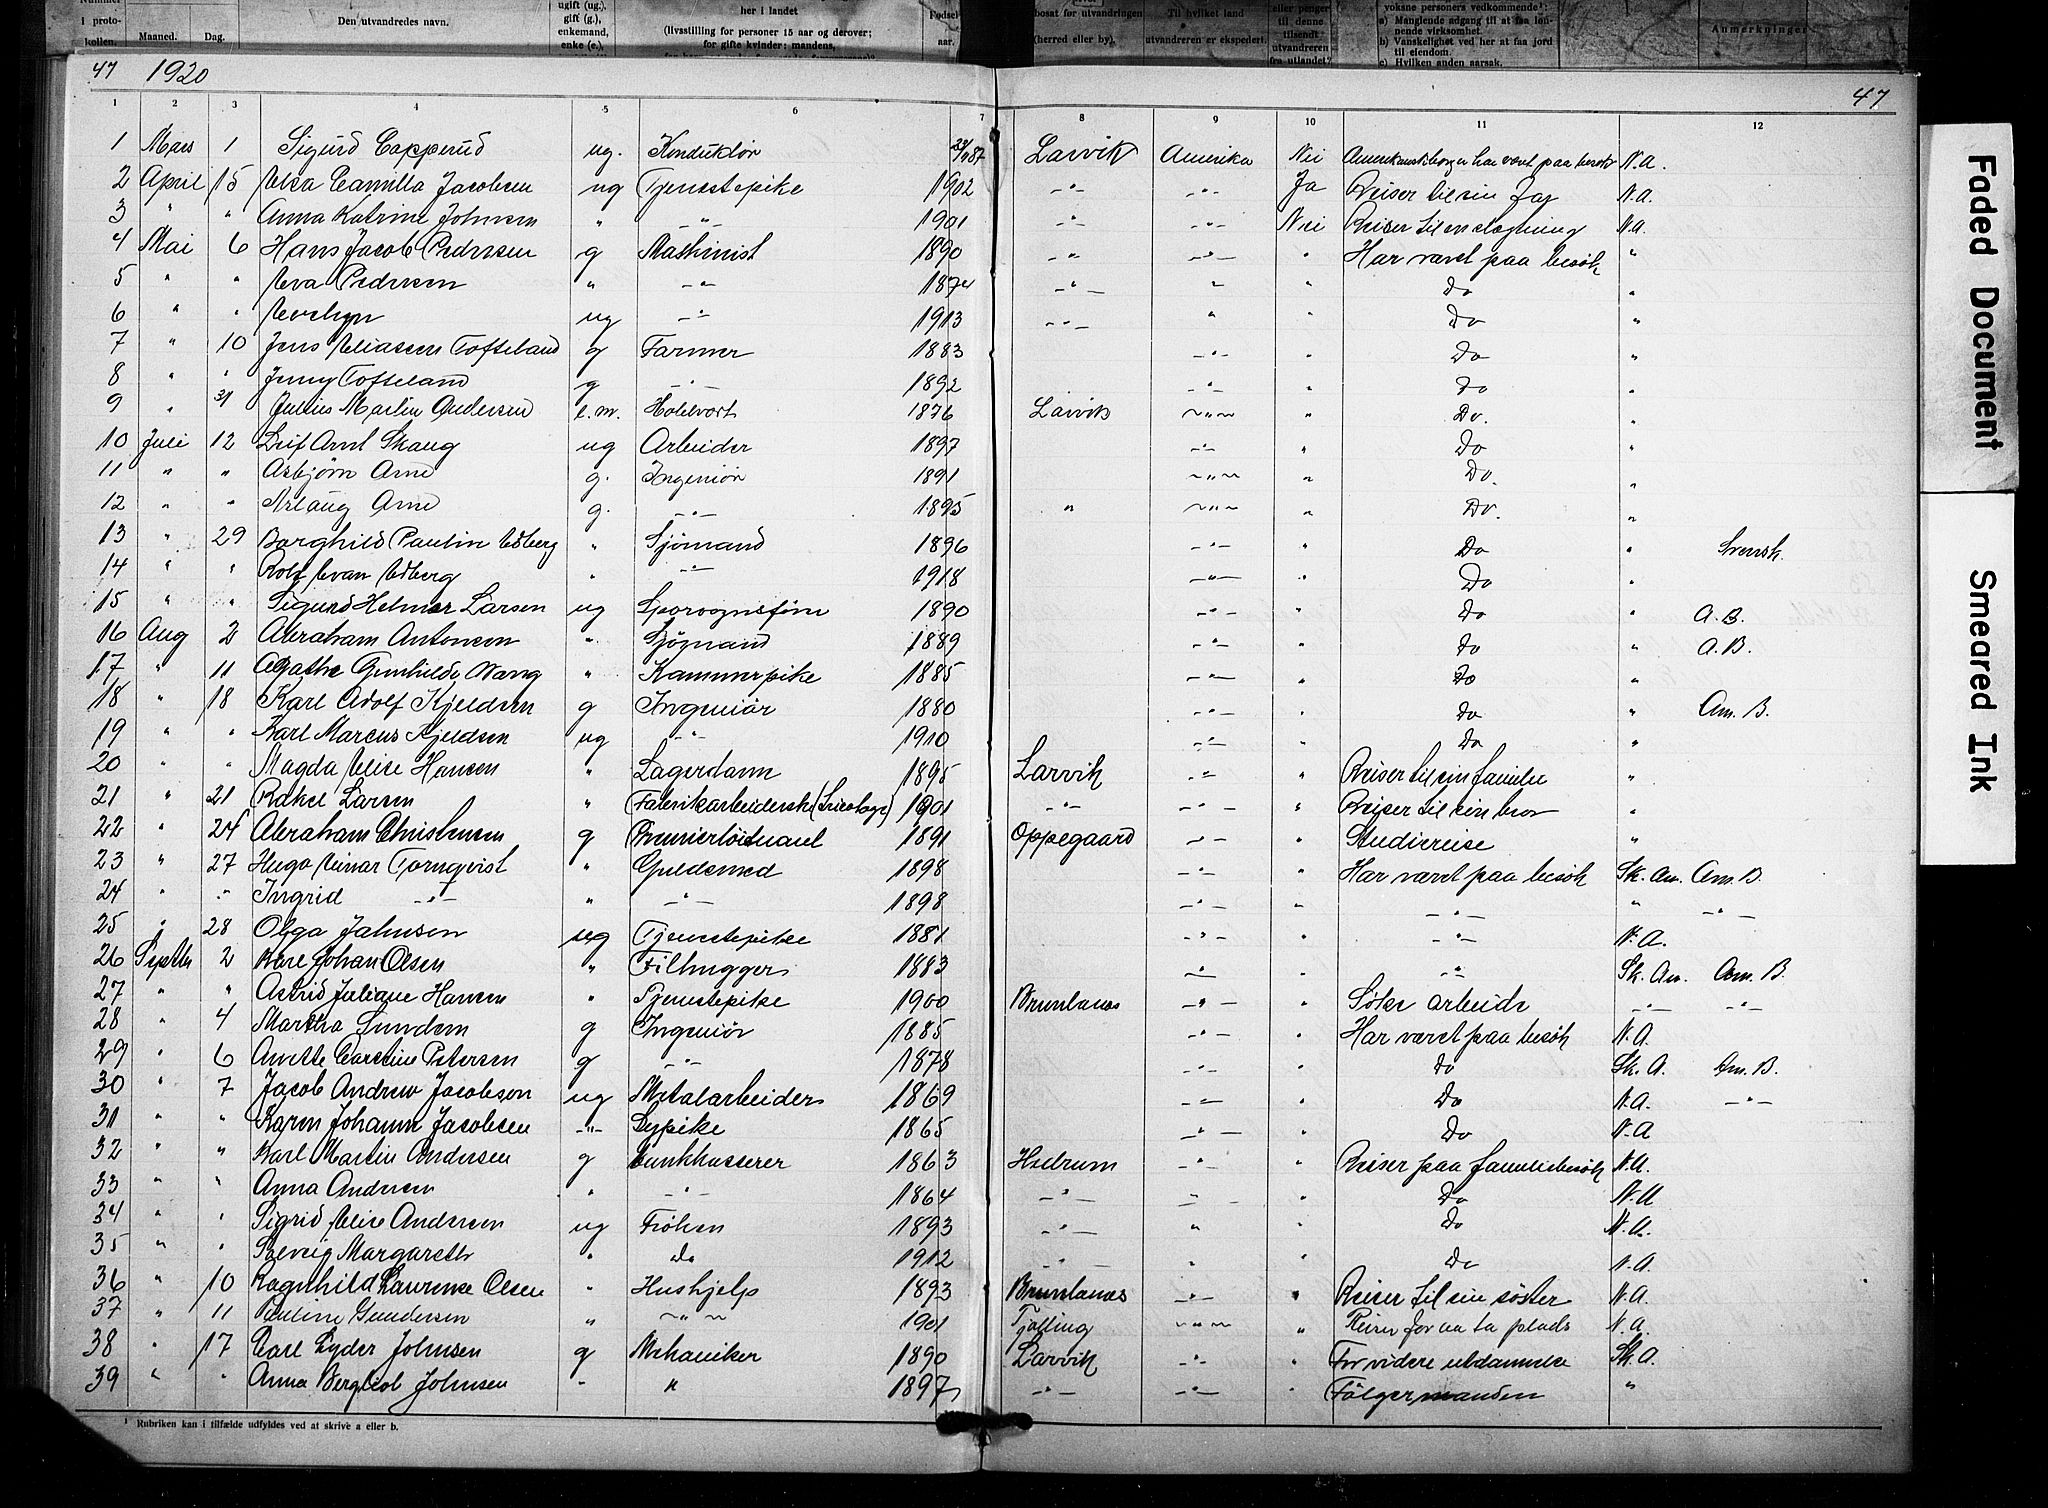 i proto-
kollen. Maaned. Dag. Den utvandredes navn.
ugift (ug.)
gift (g.),
enkemand,
enke (e.),
her i landet
(livsstilling for personer 15 aar og derover;
for gifte kvinder: mandens,
Fødsels-
aar.
bosat før utvandringen
(herred eller by),
Til hvilket land
utvandreren er ekspedert.
eller penger
til denne
tilsendt
utvandreren
fra utlandet?
voksne personers vedkommende¹
a) Manglende adgang til at faa løn-
nende virksomhet.
b) Vanskelighet ved her at faa jord
til eiendom.
c) Hvilken anden aarsak.
Anmerkninger
47 1920 47
1 2 3 4 5 6 7 8 9 10 11 12
1 Mars 1 Sigurd Capperud ug. Konduktør Larvik Amerika Nei Amerikansk borger har været paa besøk N.A.
2 April 15 Elsa Camilla Jacobsen ug Tjenestepike 1902 -"- -"- Ja Reiser til sin Far N.A.
3 " " Anna Katrine Johnsen " -"- 1901 -"- -"- Nei Reiser til en slægtning N.A.
4 Mai 6 Hans Jacob Pedersen g Maskinist 1890 -"- -"- " Har været paa besøk "
5 " " Eva Pedersen " -"- 1874 -"- " " Do "
6 " " Evelyn ug -"- 1913 -"- " " Do "
7 " 10 Jens Eliassen Tofteland g Farmer 1883 -"- " Do "
8 " " Jenny Tofteland g -"- 1892 -"- " Do "
9 " 31 Julius Martin Andersen e.m. Hotelvært 1876 Larvik -"- " Do. "
10 Juli 12 Leif Arnt Skaug ug Arbeider 1897 -"- " Do "
11 " " Asbjørn Arne g. Ingeniør 1891 -"- " Do. "
12 " " Aslaug Arne g. -"- 1895 " -"- " Do. "
13 " 29 Borghild Paulin Edberg " Sjömand 1896 -"- " Do " Svensk.
14 " " Rolf Evan Edberg " -"- 1918 -"- " Do "
15 " " Sigurd Helmer Larsen ug Sporvognsfører 1890 -"- " Do " A.B.
16 Aug 2 Abraham Antonsen " Sjömand 1889 -"- " Do " A.B.
17 " 11 Agathe Gunhilde Wang " Kammerpike 1885 -"- " Do "
18 " 18 Karl Adolf Kjeldsen g Ingeniør 1880 -"- " Do " Am. B.
19 " " Karl Marcus Kjeldsen ug -"- 1910 -"- " Do "
20 " " Magda Elise Hansen " Lagerdame 1895 Larvik -"- " Reiser til sin familie "
21 " 21 Rakel Larsen " Fabrikarbeiderske 1901 -"- " Reiser til sin bror "
22 " 24 Abraham Christensen g 1891 Oppegaard -"- " Studiereise "
23 " 27 Hugo Einar Tornqvist " Guldsmed 1898 -"- " Har været paa besøk Sk. Am. Am. B.
24 " " Ingrid -"- " -"- 1898 -"- " -"- " -"-
25 " 28 Olga Jahnsen ug Tjenestepike 1881 -"- " -"- N.A.
26 Septbr 2 Kare Johan Olsen " Filhugger 1883 -"- " -"- Sk. Am. Am. B.
27 " " Astrid Juliane Hansen " Tjenestepike 1900 Brunlanes -"- " Söker arbeide -"- -"-
28 " 4 Martha Gundersen g Ingeniør 1885 -"- " Har været paa besøk N.A.
29 " 6 Anette Carstine Petersen g -"- 1878 -"- " Do Sk. A. Am. B.
30 " 7 Jacob Andrew Jacobson ug Metalarbeider 1869 -"- " Do N.A. -"-
31 " " Karen Johanne Jacobsen -"- Sypike 1865 -"- " Do N.A
32 " " Karl Martin Andersen g Bankkasserer 1863 Hedrum -"- " Reiser paa familiebesøk N.A.
33 " " Anna Andersen " -"- 1864 -"- -"- " Do N.A
34 " " Sigrid Elise Andersen ug Frøken 1893 " " Do N.A.
35 " " Solveig Margareth " do 1912 -"- " " Do N.A.
36 " 10 Ragnhild Laurense Olsen " Hushjelp 1893 Brunlanes -"- " Reiser til sin søster N.A.
37 " 11 Pauline Gundersen " -"- 1901 Tjølling -"- " Reiser for aa ta plads N.A.
38 " 17 Carl Lyder Johnsen g Mekaniker 1890 Larvik -"- " For videre utdannelse Sk. A.
39 " " Anna Bergliot Johnsen " " 1897 -"- -"- " Fölger manden "
¹ Rubriken kan i tilfælde utfyldes ved at skrive a eller b.
Faded Document
Smeared Ink